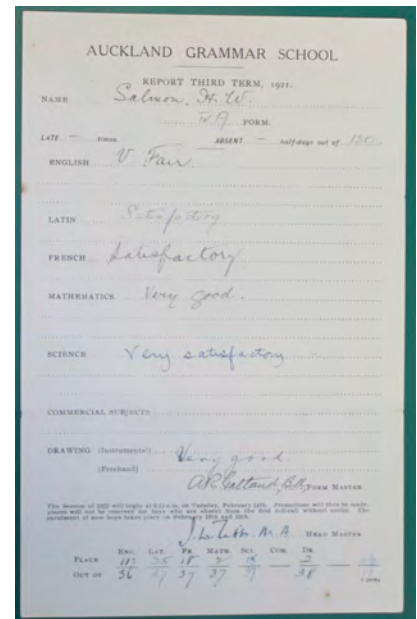 AUCKLAND GRAMMAR SCHOOL
REPORT THIRD TERM, 1921.
NAME Salmon, H. W.
FORM.
LATE — times ABSENT — half-days out of 130
ENGLISH V Fair.
LATIN Satisfactory
FRENCH Satisfactory
MATHEMATICS Very good.
SCIENCE Very satisfactory
COMMERCIAL SUBJECTS
DRAWING (Instruments) Very good.
(Freehand)
FORM MASTER.
The Session of 1922 will begin at on Tuesday, February 14th. Promotions will then be made,
places will not be reserved for boys who are absent from the first without notice. The
enrolment of new boys takes place on February
M.A. HEAD MASTER
ENG. LAT. FR. MATH. SCI. COM. DR.
PLACE 18 2
OUT OF 36 37 37 37 37 38